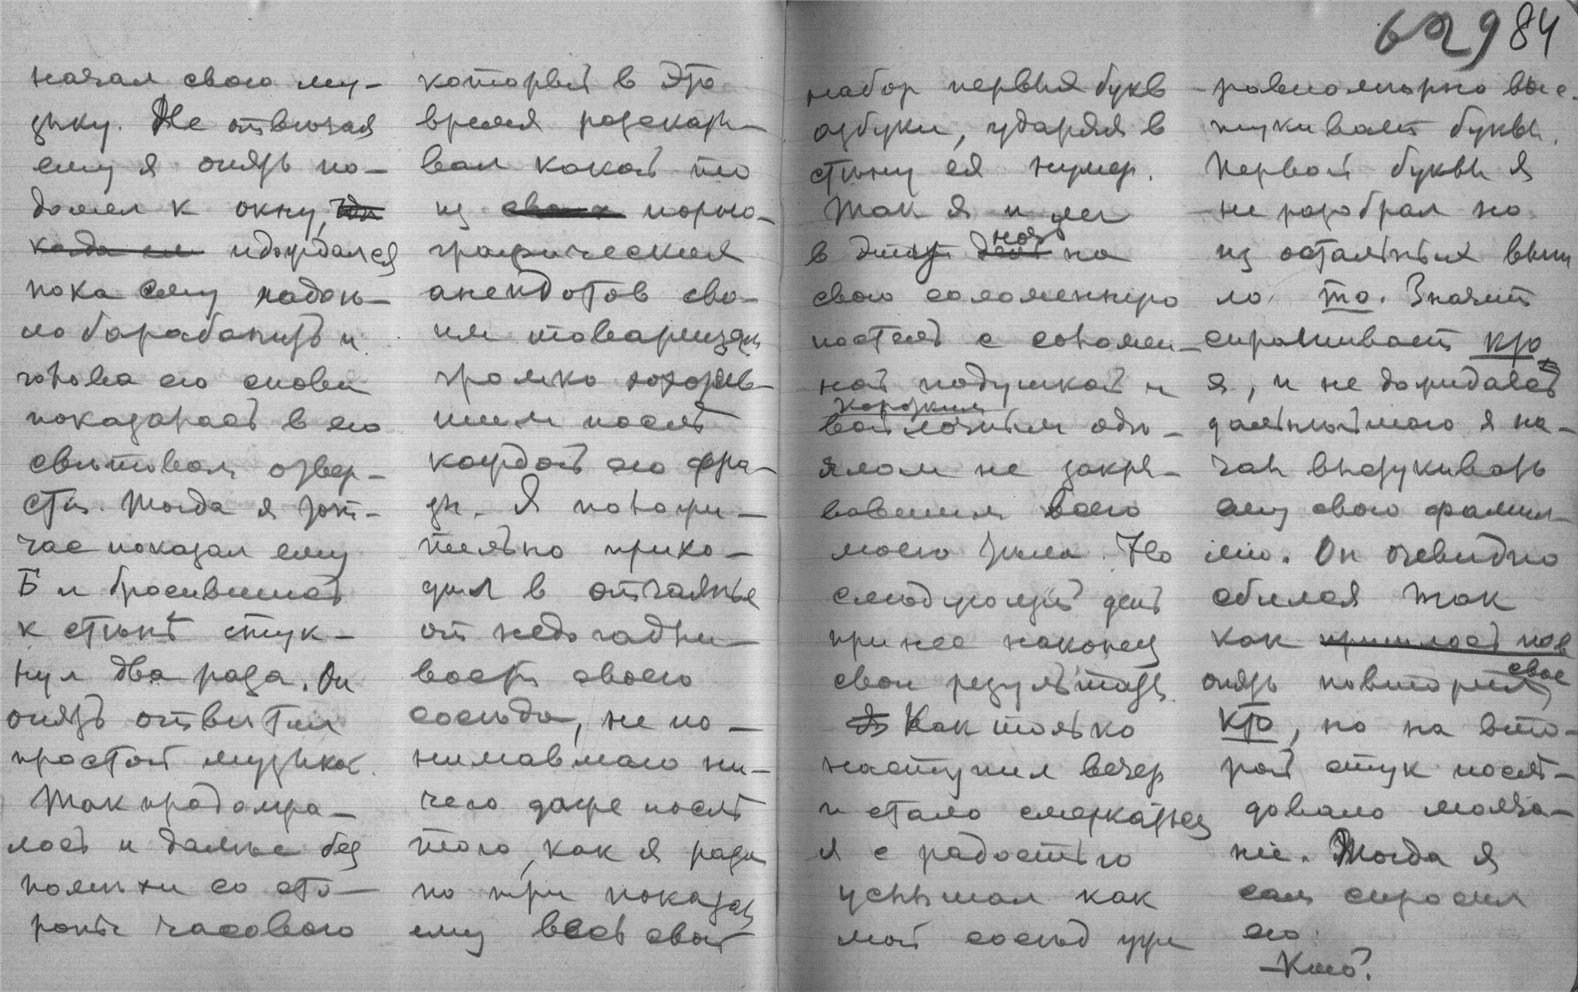 62984
начал свою му-
зыку. Не отвѣчая
ему я опять по-
дошел к окну,
и дождался
пока ему надоѣ-
ло барабанить и
голова его снова
показалась в его
свѣтовом отвер-
стіи. Тогда я тот-
час показал ему
Б и бросившись
к стѣнѣ стук-
нул два раза. Он
опять отвѣтил
простой музыкой.
Так продолжа-
лось и дальше без
помѣхи со сто-
роны часового
который в это
время разсказы-
вал какой то
из своих порно-
графических
анекдотов сво-
им товарищам
громко хохотав-
шим послѣ
каждой его фра-
зы. Я положи-
тельно прихо-
дил в отчаянье
от недогадли-
вости своего
сосѣда, не по-
нимавшаго ни-
чего даже послѣ
того, как я раза
по три показал
ему весь свой
набор первых букв
азбуки, ударяя в
стѣну ея нумер.
Так я и лег
в эту ночь на
свою соломенную
постель с соломен-
ной подушкой и
коротким
одѣ-
ялом не закры-
вавшим всего
моего тѣла. Но
слѣдующій день
принес наконец
свои результаты.
Как только
наступил вечер
и стало смеркаться
я с радостью
услышал как
мой сосѣд уже
равномѣрно выс-
тукивает буквы.
Первой буквы я
не разобрал но
из остальных выш
ло то. Значит
спрашивает кто
я, и не дожидаясь
дальнѣйшаго я на-
чал выстукивать
ему свою фамил-
ію. Он очевидно
сбился так
как пришлось пов
опять повторил свое
кто, но на вто-
рой стук послѣ-
довало молча-
ніе. Тогда я
сам спросил
его
—Кто?